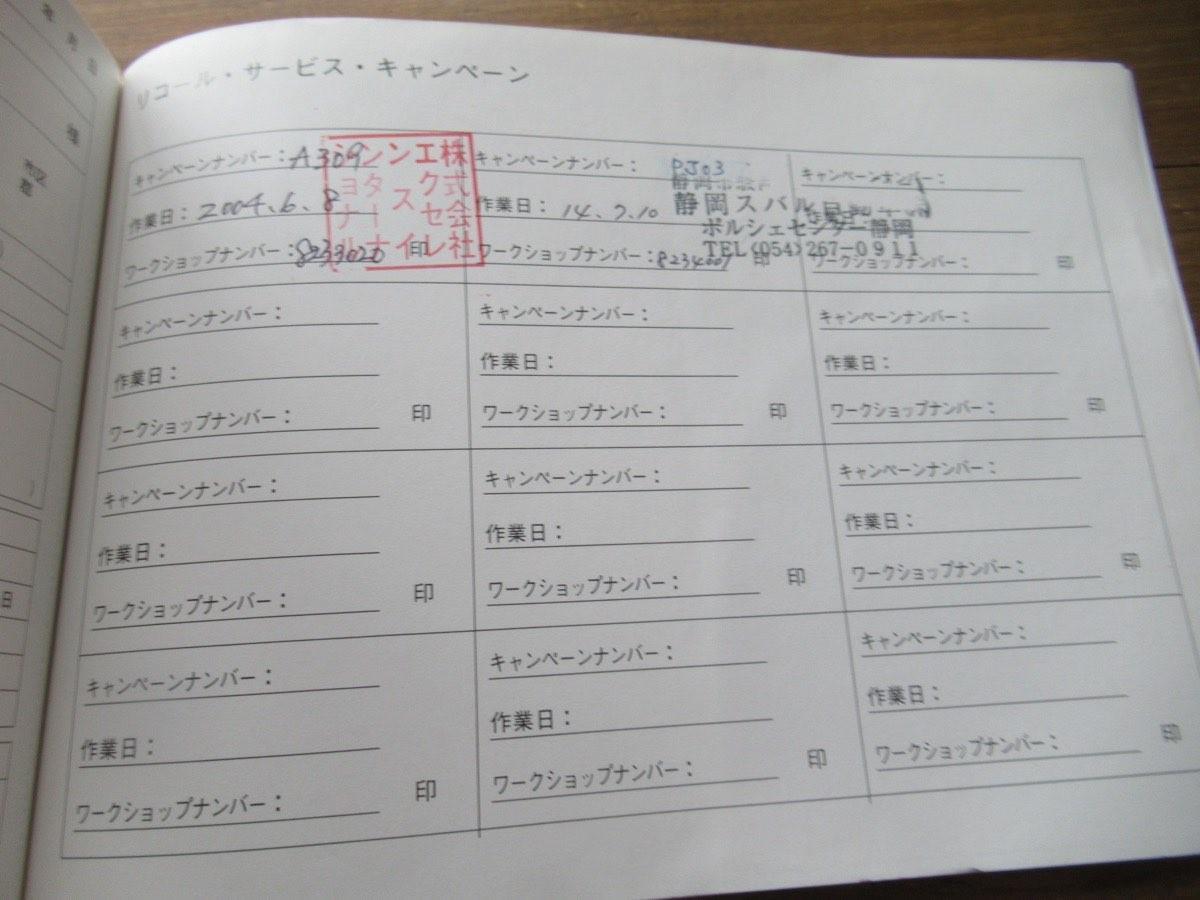 リコール・サービス・キャンペーン
キャンペーンナンバー：A309
作業日：2004.6.8
ワークショップナンバー：8233020 印
キャンペーンナンバー： PJ03
作業日： 14.7.10
ワークショップナンバー： 印
静岡スバル
ポルシェセンター静岡
TEL(054)267-0911
キャンペーンナンバー：
作業日：
ワークショップナンバー： 印
キャンペーンナンバー：
作業日：
ワークショップナンバー： 印
キャンペーンナンバー：
作業日：
ワークショップナンバー： 印
キャンペーンナンバー：
作業日：
ワークショップナンバー： 印
キャンペーンナンバー：
作業日：
ワークショップナンバー： 印
キャンペーンナンバー：
作業日：
ワークショップナンバー： 印
キャンペーンナンバー：
作業日：
ワークショップナンバー： 印
キャンペーンナンバー：
作業日：
ワークショップナンバー： 印
キャンペーンナンバー：
作業日：
ワークショップナンバー： 印
キャンペーンナンバー：
作業日：
ワークショップナンバー： 印